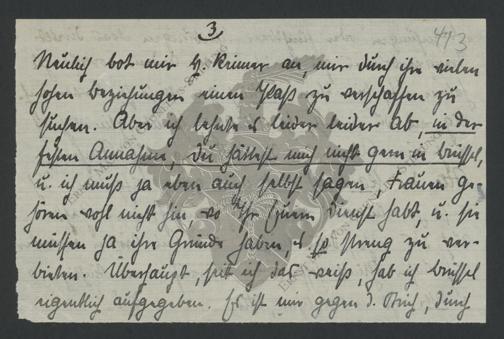 3
4/3
Neulich bot mir H. Kremer an, mir durch ihre vielen
hohen Beziehungen einen Platz zu verschaffen zu
suchen. Aber ich lehnte es leider leider ab, in der
festen Annahme, Du hättest mich nicht gern in Brüssel,
u. ich muß ja eben auch selbst sagen, Frauen ge-
hören wohl nicht hin, wo Ihr Euern Dienst habt, u. sie
müssen ja ihre Gründe haben es so streng zu ver-
bieten. Überhaupt, seit ich das weiß, hab ich Brüssel
eigentlich aufgegeben. Es ist mir gegen d. Strich, durch